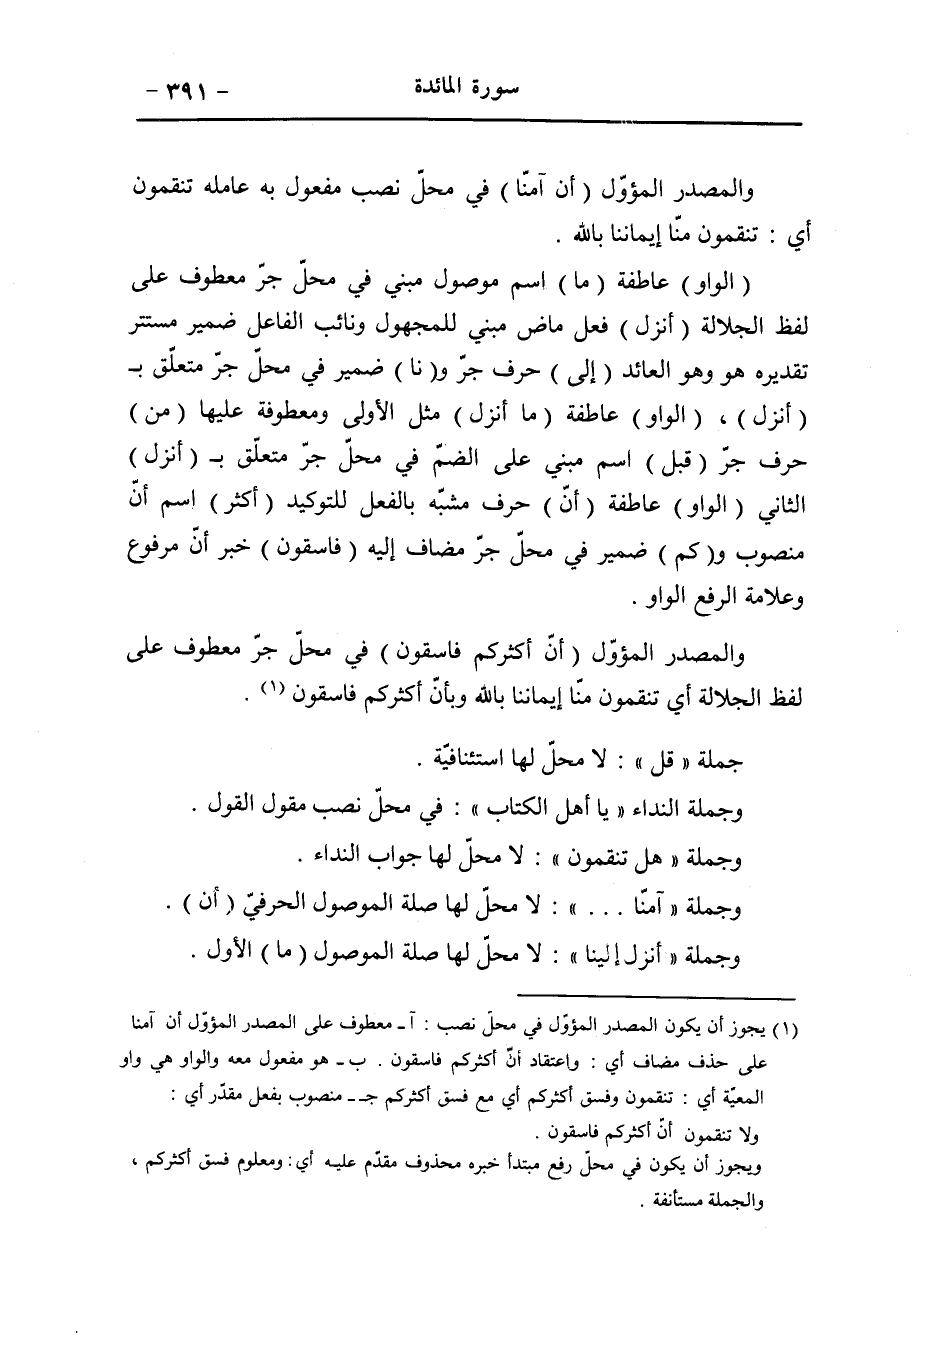 سورة المائدة - ٣٩١ -
والمصدر المؤوّل ( أن آمنّا ) في محلّ نصب مفعول به عامله تنقمون
أي : تنقمون منّا إيماننا بالله .
( الواو ) عاطفة ( ما ) اسم موصول مبني في محلّ جرّ معطوف على
لفظ الجلالة ( أنزل ) فعل ماض مبني للمجهول ونائب الفاعل ضمير مستتر
تقديره هو وهو العائد ( إلى ) حرف جرّ و( نا ) ضمير في محلّ جرّ متعلّق بـ
( أنزل ) ، ( الواو ) عاطفة ( ما أنزل ) مثل الأولى ومعطوفة عليها ( من )
حرف جرّ ( قبل ) اسم مبني على الضمّ في محلّ جرّ متعلّق بـ ( أنزل )
الثاني ( الواو ) عاطفة ( أنّ ) حرف مشبّه بالفعل للتوكيد ( أكثر ) اسم أنّ
منصوب و( كم ) ضمير في محلّ جرّ مضاف إليه ( فاسقون ) خبر أنّ مرفوع
وعلامة الرفع الواو .
والمصدر المؤوّل ( أنّ أكثركم فاسقون ) في محلّ جرّ معطوف على
لفظ الجلالة أي تنقمون منّا إيماننا بالله وبأنّ أكثركم فاسقون (١) .
جملة « قل » : لا محلّ لها استئنافيّة .
وجملة النداء « يا أهل الكتاب » : في محلّ نصب مقول القول .
وجملة « هل تنقمون » : لا محلّ لها جواب النداء .
وجملة « آمنّا . . . » : لا محلّ لها صلة الموصول الحرفيّ ( أن ) .
وجملة « أنزل إلينا » : لا محلّ لها صلة الموصول ( ما ) الأول .
(١) يجوز أن يكون المصدر المؤوّل في محلّ نصب : آ ـ معطوف على المصدر المؤوّل أن آمنا
على حذف مضاف أي : واعتقاد أنّ أكثركم فاسقون . ب ـ هو مفعول معه والواو هي واو
المعيّة أي : تنقمون وفسق أكثركم أي مع فسق أكثركم جـ ـ منصوب بفعل مقدّر أي :
ولا تنقمون أنّ أكثركم فاسقون .
ويجوز أن يكون في محلّ رفع مبتدأ خبره محذوف مقدّم عليه أي : ومعلوم فسق أكثركم ،
والجملة مستأنفة .